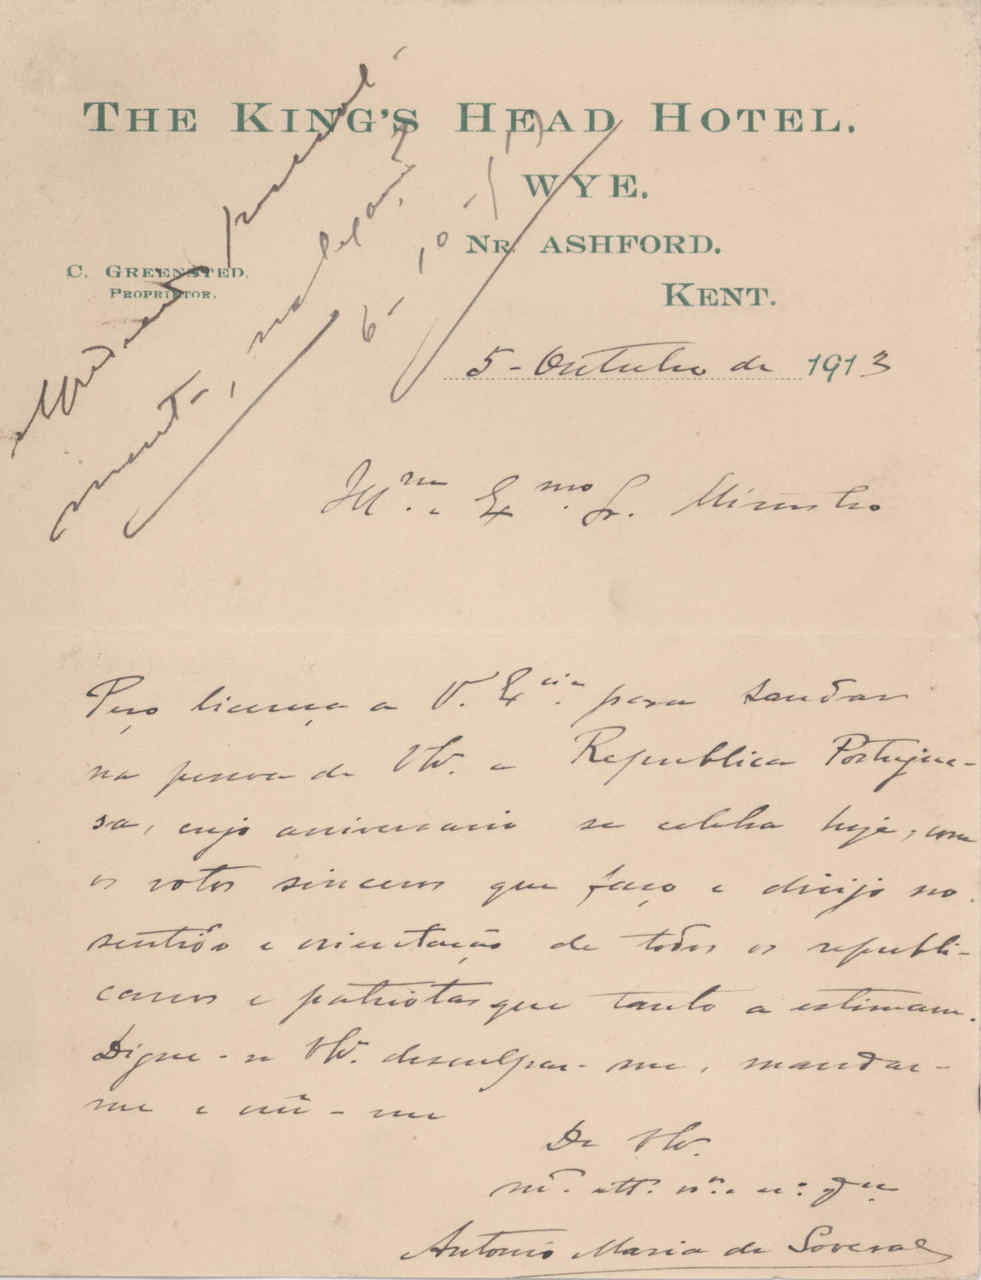 THE KING'S HEAD HOTEL.
WYE.
NR. ASHFORD.
KENT.
C. GREENSTED.
PROPRIETOR.
5 - Outubro de 1913
Ill.mo e Ex.mo Sr. Ministro
Peço licença a V. Ex.cia para saudar
na pessoa de V. a Republica Portugue-
sa, cujo aniversario se celebra hoje, com
os votos sinceros que faço e dirijo no
sentido e orientação de todos os republi-
canos e patriotas que tanto a estimam.
Digne-se V. desculpar-me, mandar-
me e -me
De V.
m.to att.
Antonio Maria de Soveral